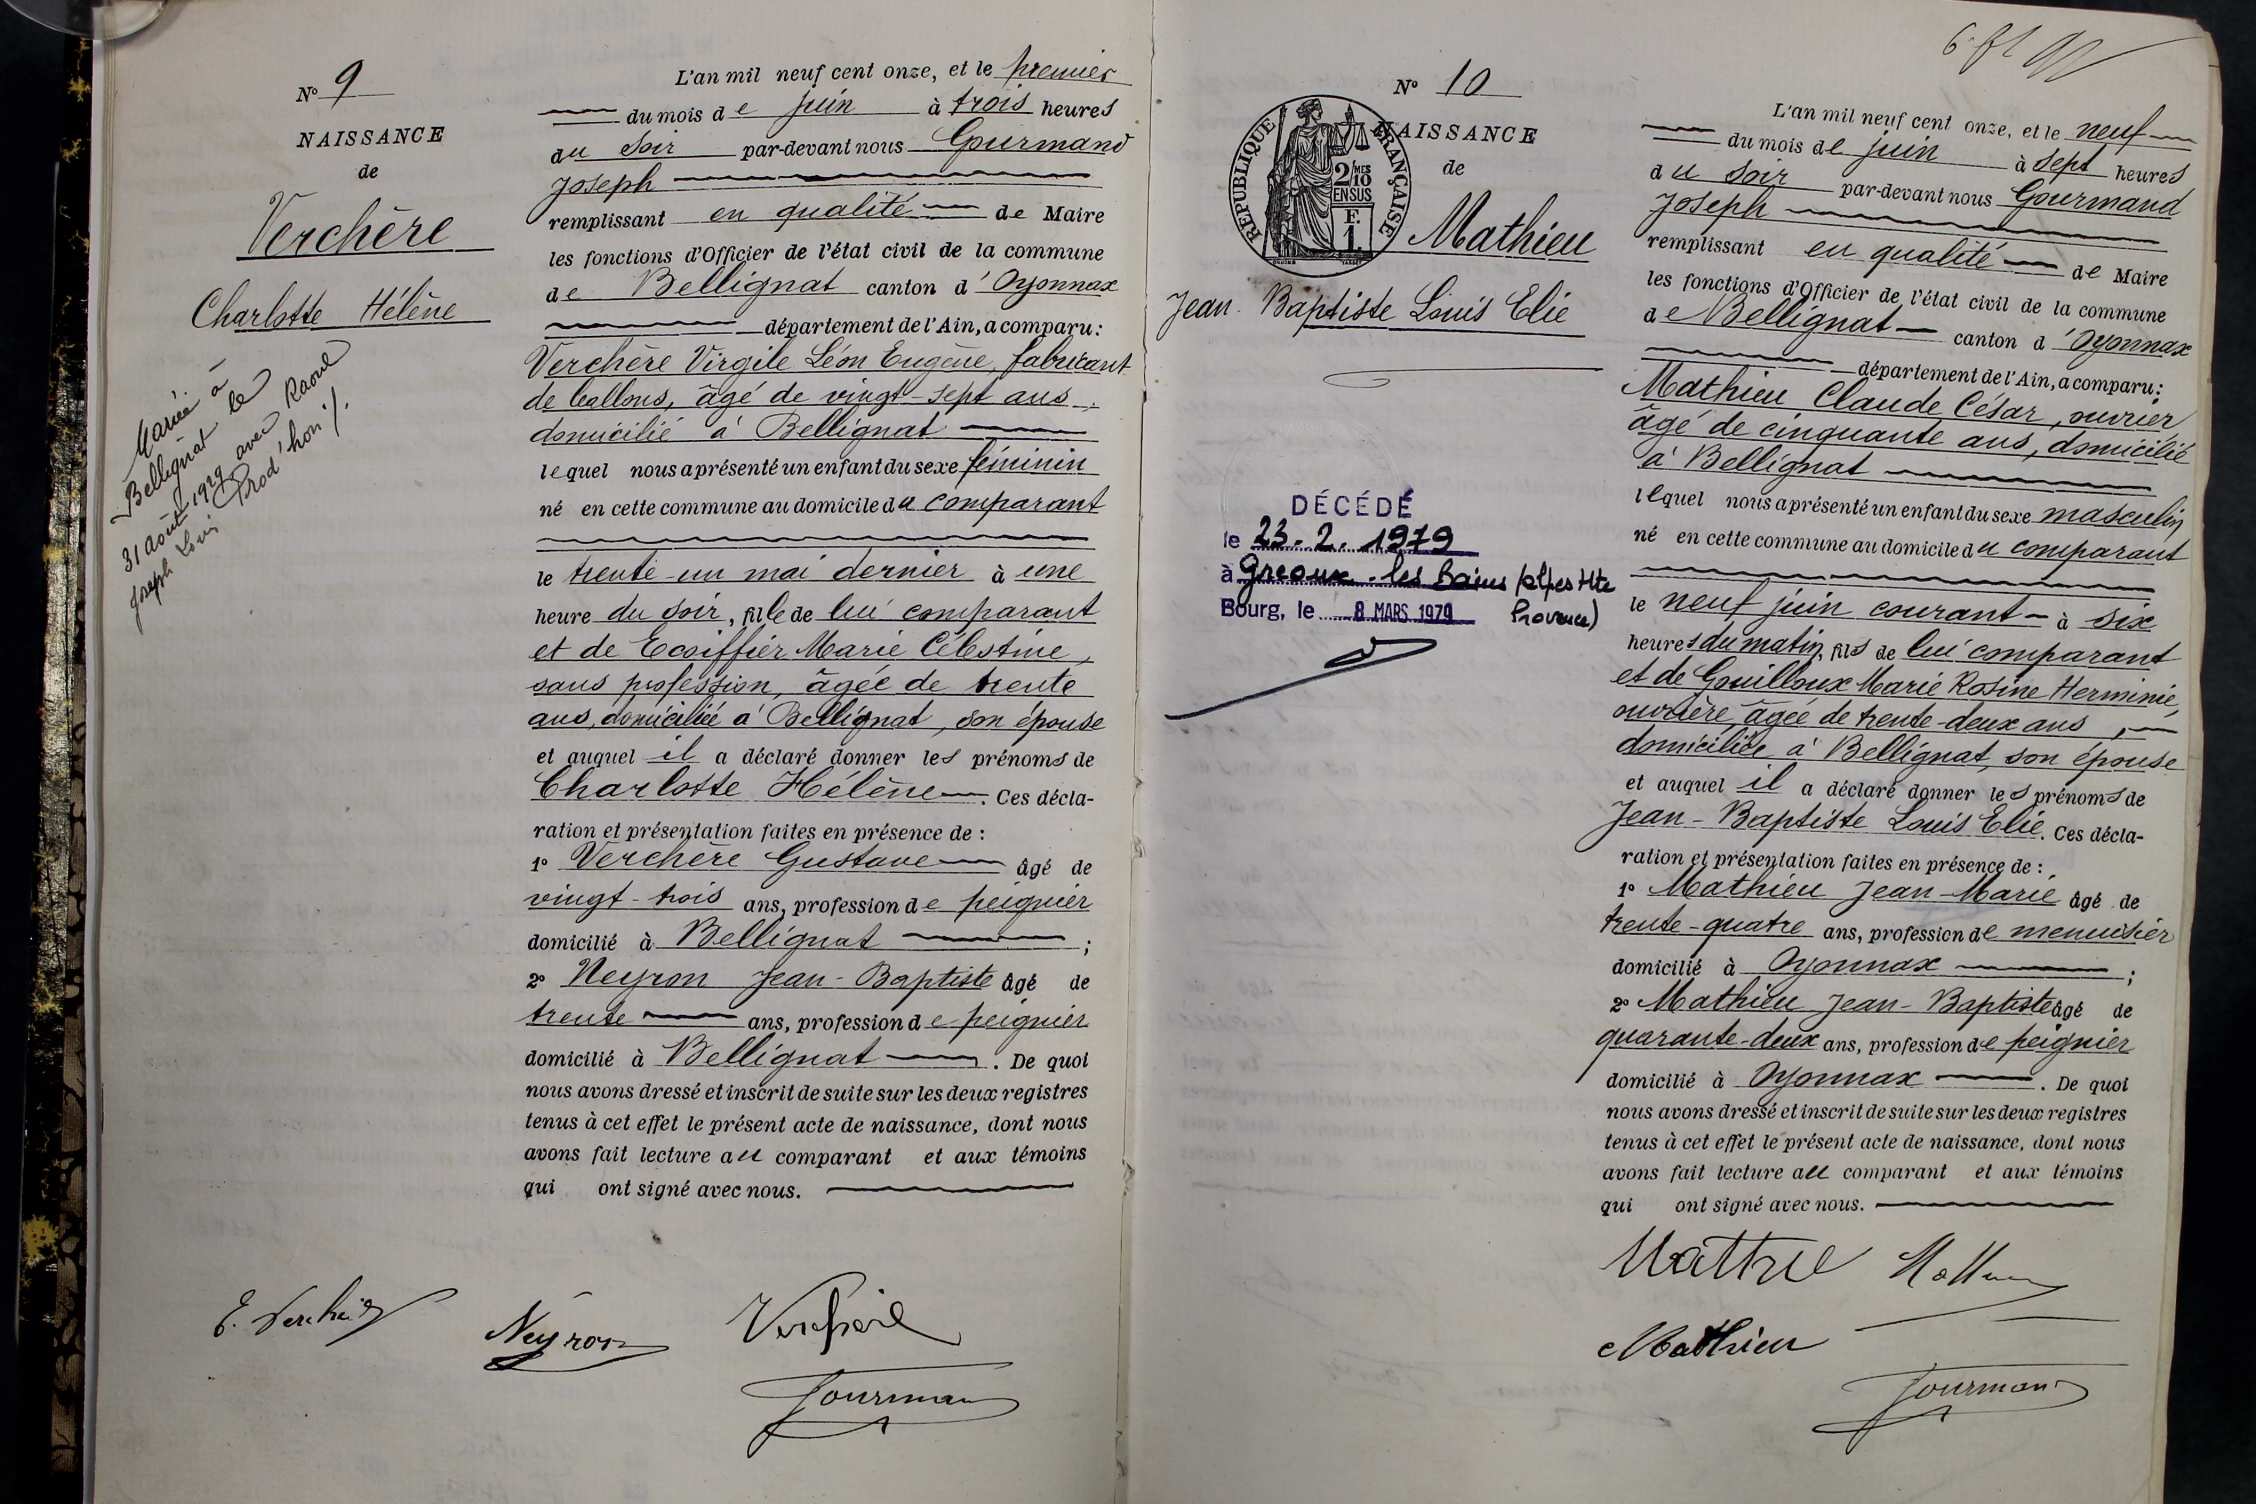 N° 9
NAISSANCE
de
Verchère
Charlotte Hélène
Mariée à
Bellignat le
31 août 1929 avec Raoul
Joseph Louis Prod'hon ./.
L'an mil neuf cent onze, et le premier
du mois de juin à trois heures
du soir par-devant nous Gourmand
Joseph
remplissant en qualité de Maire
les fonctions d'Officier de l'état civil de la commune
de Bellignat canton d'Oyonnax
département de l'Ain, a comparu :
Verchère Virgile Léon Eugène, fabricant
de ballons, âgé de vingt-sept ans,
domicilié à Bellignat
lequel nous a présenté un enfant du sexe féminin
né en cette commune au domicile du comparant
le trente-un mai dernier à une
heure du soir, fille de lui comparant
et de Ecoiffier Marie Célestine,
sans profession, âgée de trente
ans, domiciliée à Bellignat, son épouse
et auquel il a déclaré donner les prénoms de
Charlotte Hélène. Ces décla-
ration et présentation faites en présence de :
1° Verchère Gustave âgé de
vingt-trois ans, profession de peignier
domicilié à Bellignat ;
2° Neyron Jean-Baptiste âgé de
trente ans, profession de peignier
domicilié à Bellignat. De quoi
nous avons dressé et inscrit de suite sur les deux registres
tenus à cet effet le présent acte de naissance, dont nous
avons fait lecture au comparant et aux témoins
qui ont signé avec nous.
E. Verchère
Neyron
Verchère
Gourmand
N° 10
NAISSANCE
de
RÉPUBLIQUE FRANÇAISE
2/10MES
EN SUS
F.
1.
Mathieu
Jean-Baptiste Louis Elie
DÉCÉDÉ
le 23.2.1979
à Greoux-les Bains (Alpes Hte
Provence)
Bourg, le 8 MARS 1979
L'an mil neuf cent onze, et le neuf
du mois de juin à sept heures
du soir par-devant nous Gourmand
Joseph
remplissant en qualité de Maire
les fonctions d'Officier de l'état civil de la commune
de Bellignat canton d'Oyonnax
département de l'Ain, a comparu :
Mathieu Claude César, ouvrier
âgé de cinquante ans, domicilié
à Bellignat
lequel nous a présenté un enfant du sexe masculin
né en cette commune au domicile du comparant
le neuf juin courant à six
heures du matin, fils de lui comparant
et de Gouilloux Marie Rosine Herminie,
ouvrière, âgée de trente-deux ans,
domiciliée à Bellignat, son épouse
et auquel il a déclaré donner les prénoms de
Jean-Baptiste Louis Elie. Ces décla-
ration et présentation faites en présence de :
1° Mathieu Jean-Marie âgé de
trente-quatre ans, profession de menuisier
domicilié à Oyonnax ;
2° Mathieu Jean-Baptiste âgé de
quarante-deux ans, profession de peignier
domicilié à Oyonnax. De quoi
nous avons dressé et inscrit de suite sur les deux registres
tenus à cet effet le présent acte de naissance, dont nous
avons fait lecture au comparant et aux témoins
qui ont signé avec nous.
Mathieu
Gourmand